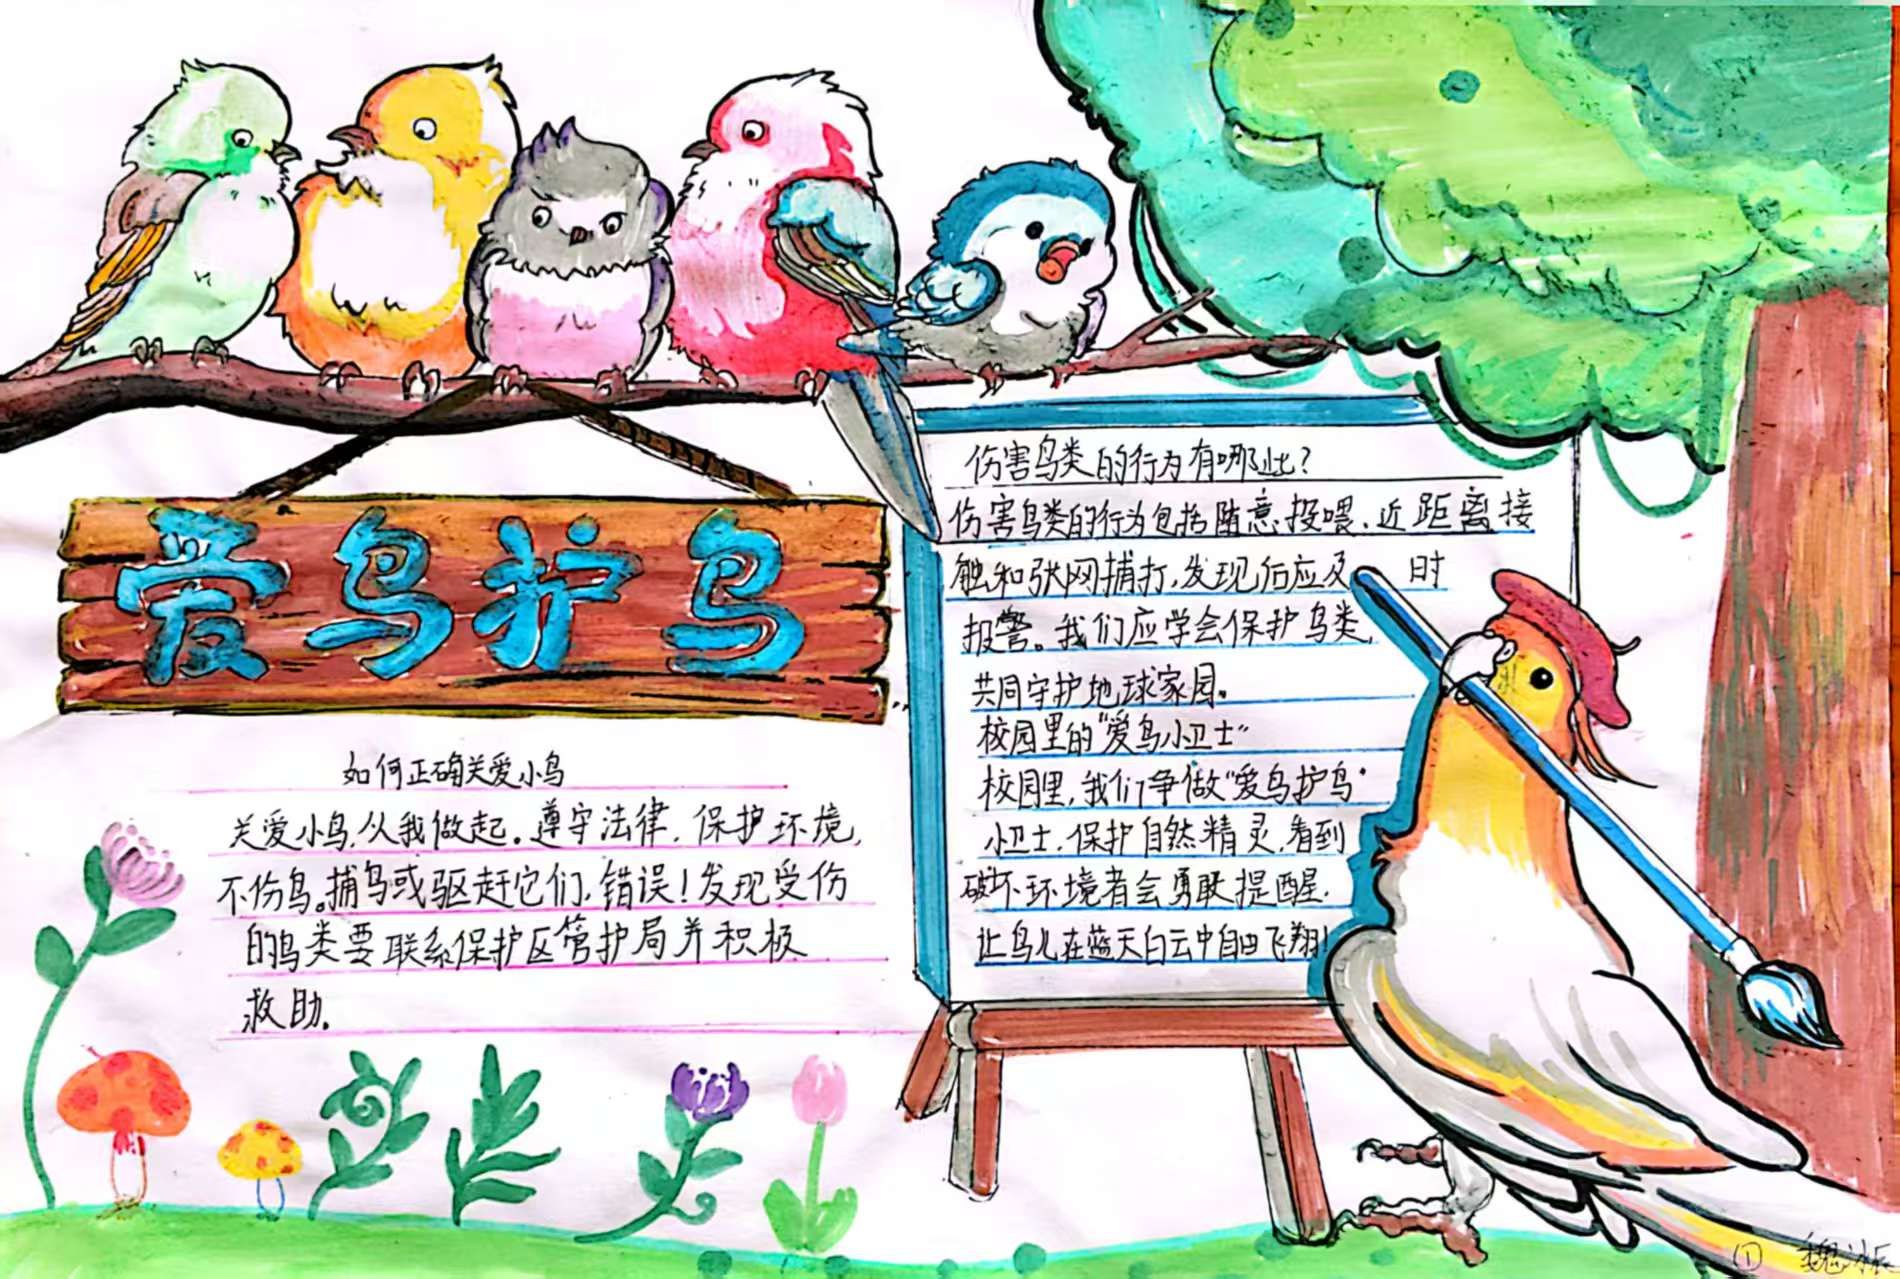 爱鸟护鸟
如何正确关爱小鸟
关爱小鸟,从我做起。遵守法律,保护环境,
不伤鸟。捕鸟或驱赶它们,错误!发现受伤
的鸟类要联系保护区管护局并积极
救助。
伤害鸟类的行为有哪些?
伤害鸟类的行为包括随意投喂、近距离接
触和张网捕打,发现后应及时
报警。我们应学会保护鸟类,
共同守护地球家园。
校园里的“爱鸟小卫士”
校园里,我们争做“爱鸟护鸟”
小卫士,保护自然精灵,看到
破坏环境者会勇敢提醒,
让鸟儿在蓝天白云中自由飞翔!
① 魏